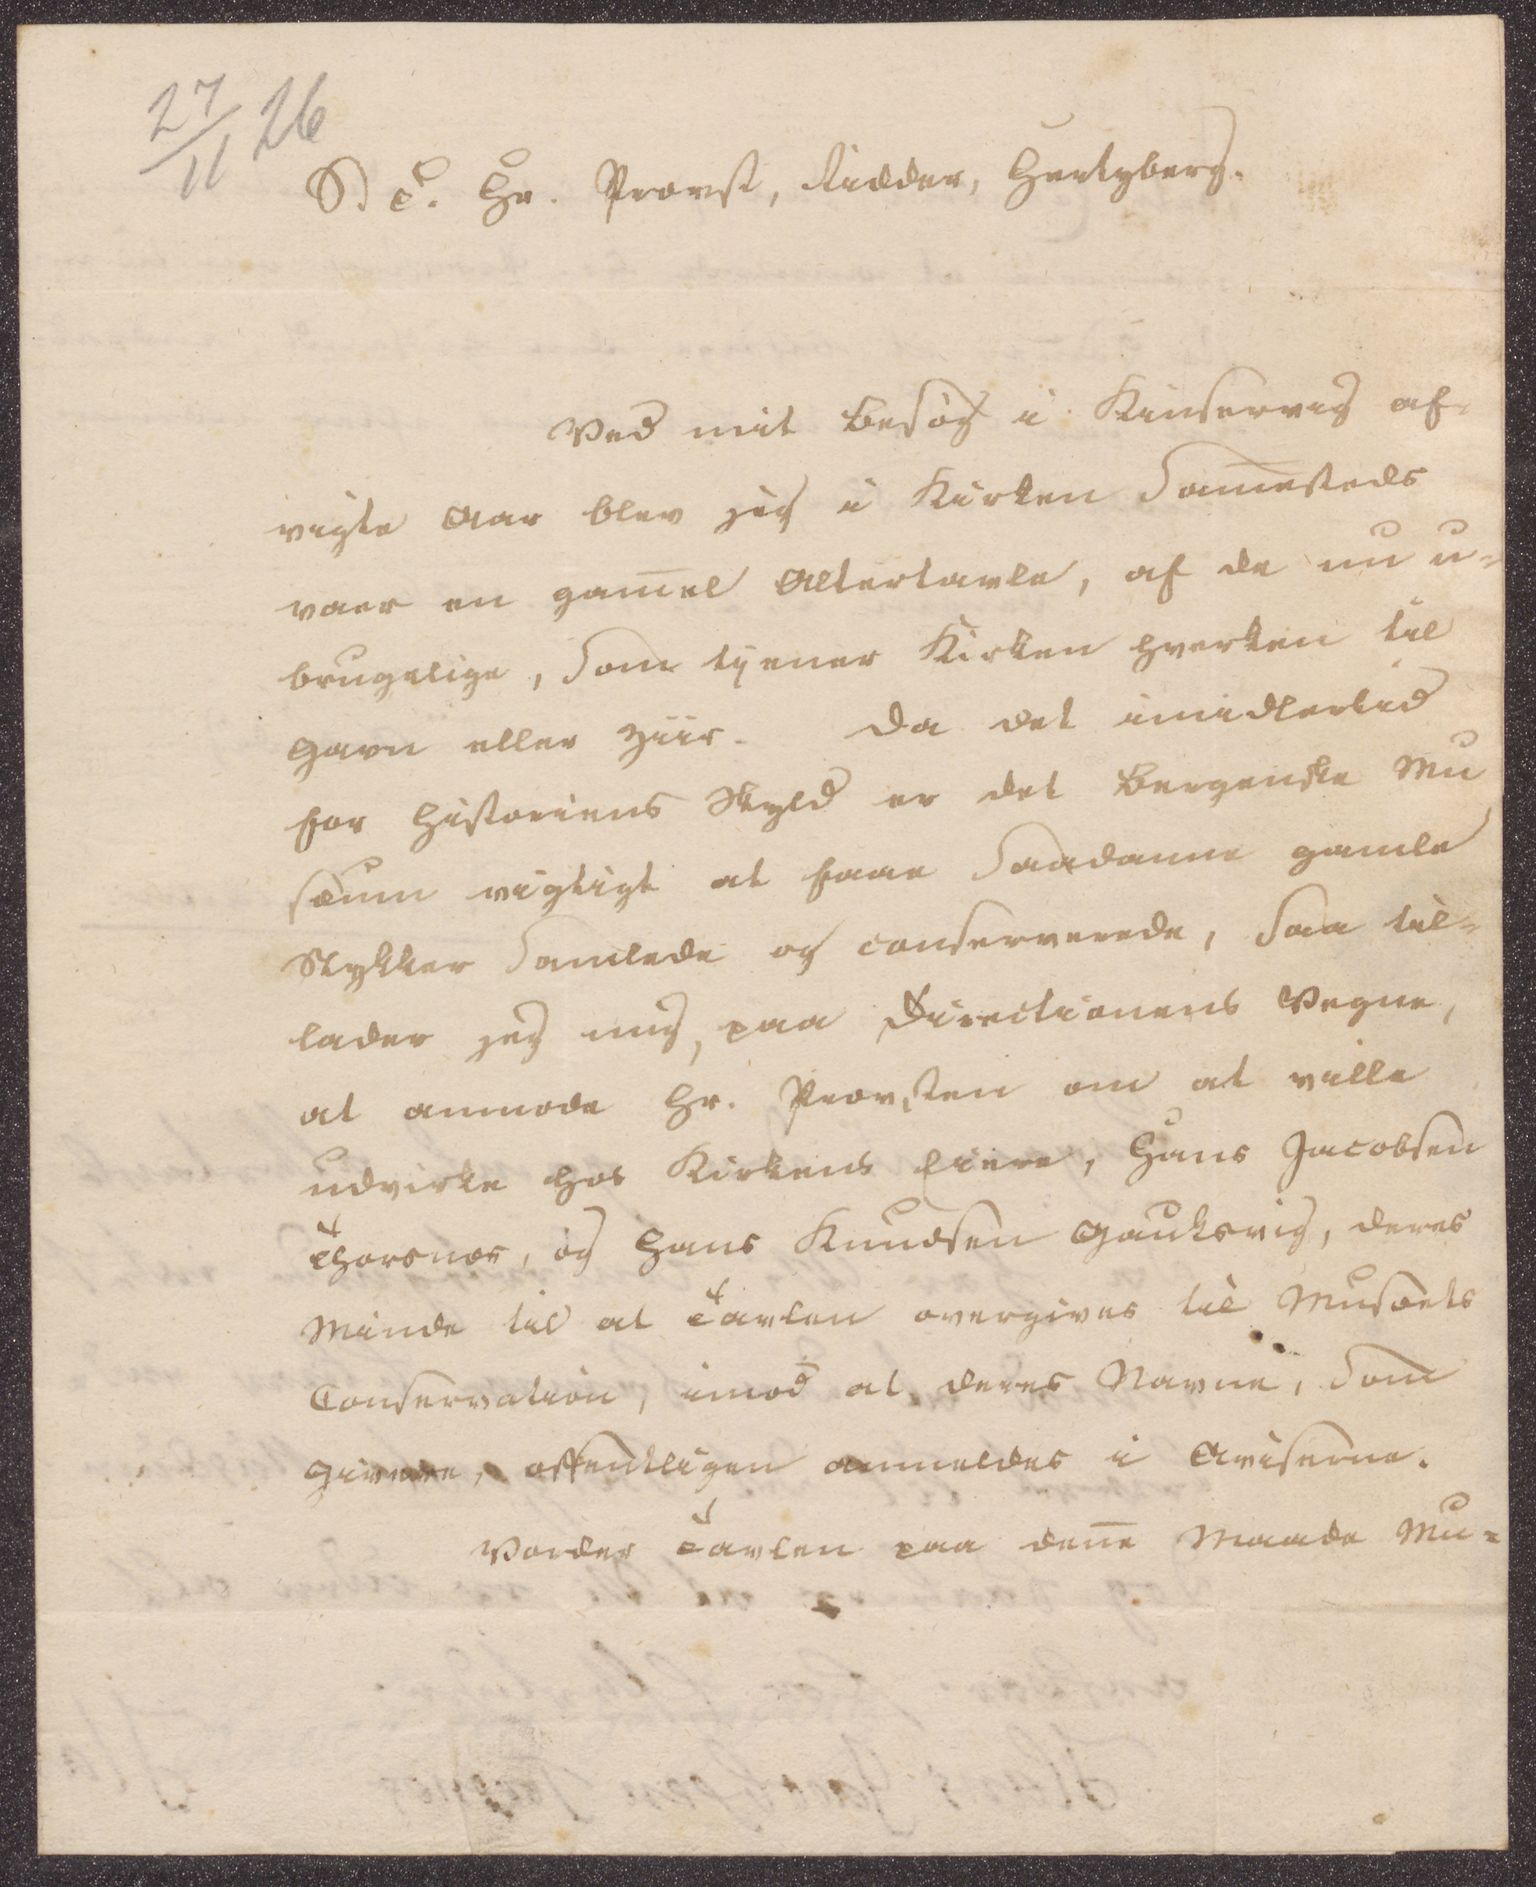 27/11 26
S. T. Hr. Provst, Ridder, Hertzberg.
Ved mit Besøg i Kinservig af-
vigte Aar blev jeg i Kirken Sammesteds
vaer en gam̄el Altertavle, af de nu u-
brugelige, Som tjener Kirken hverken til
Gavn eller Ziir. Da det imidlertid
for Historiens Skyld er det Bergenske Mu
sæum vigtigt at faae Saadanne gamle
Stykker Samlede og conserverede, Saa til-
lader jeg mig, paa Directionens Vegne,
at anmode Hr. Provsten om at ville
udvirke hos Kirkens Eiere, Hans Jacobsen
Thorsnæs, og Hans Knudsen Gauksvig, deres
Minde til at Tavlen overgives til Musæets
Conservation, imod at deres Navne, Som
Givere, offentligen anmeldes i Aviserne.
Vorder Tavlen paa den̄e Maade Mu-